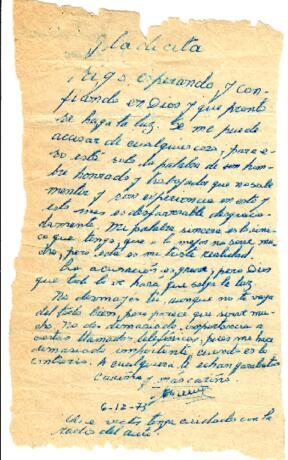 Pladicita
Sigo esperando y con-
fiando en Dios y que pronto
se haga la luz. Se me puede
acusar de cualquier cosa, pero e-
so está solo la palabra de un hom-
bre honrado y trabajador que no sabe
mentir y sin experiencia en esto y
esto mes es desfavorable desgracia-
damente. Mi palabra sincera es lo úni-
co que tengo que a lo mejor no será mu-
cho, pero esta es mi triste realidad.
La acusación es grave, pero Dios
que todo lo ve hará que salga la luz
No desmayes tú, aunque no te vaya
del todo bien, pero parece que será mu-
cho. No des demasiada importancia a
ciertas llamadas telefónicas, pues me hace
demasiado importante, cuando es lo
contrario. A cualquiera le echan garabatos
Cariños y mas cariños
6-12-73
A ese vecto tenga cuidado con la
radio del auto.